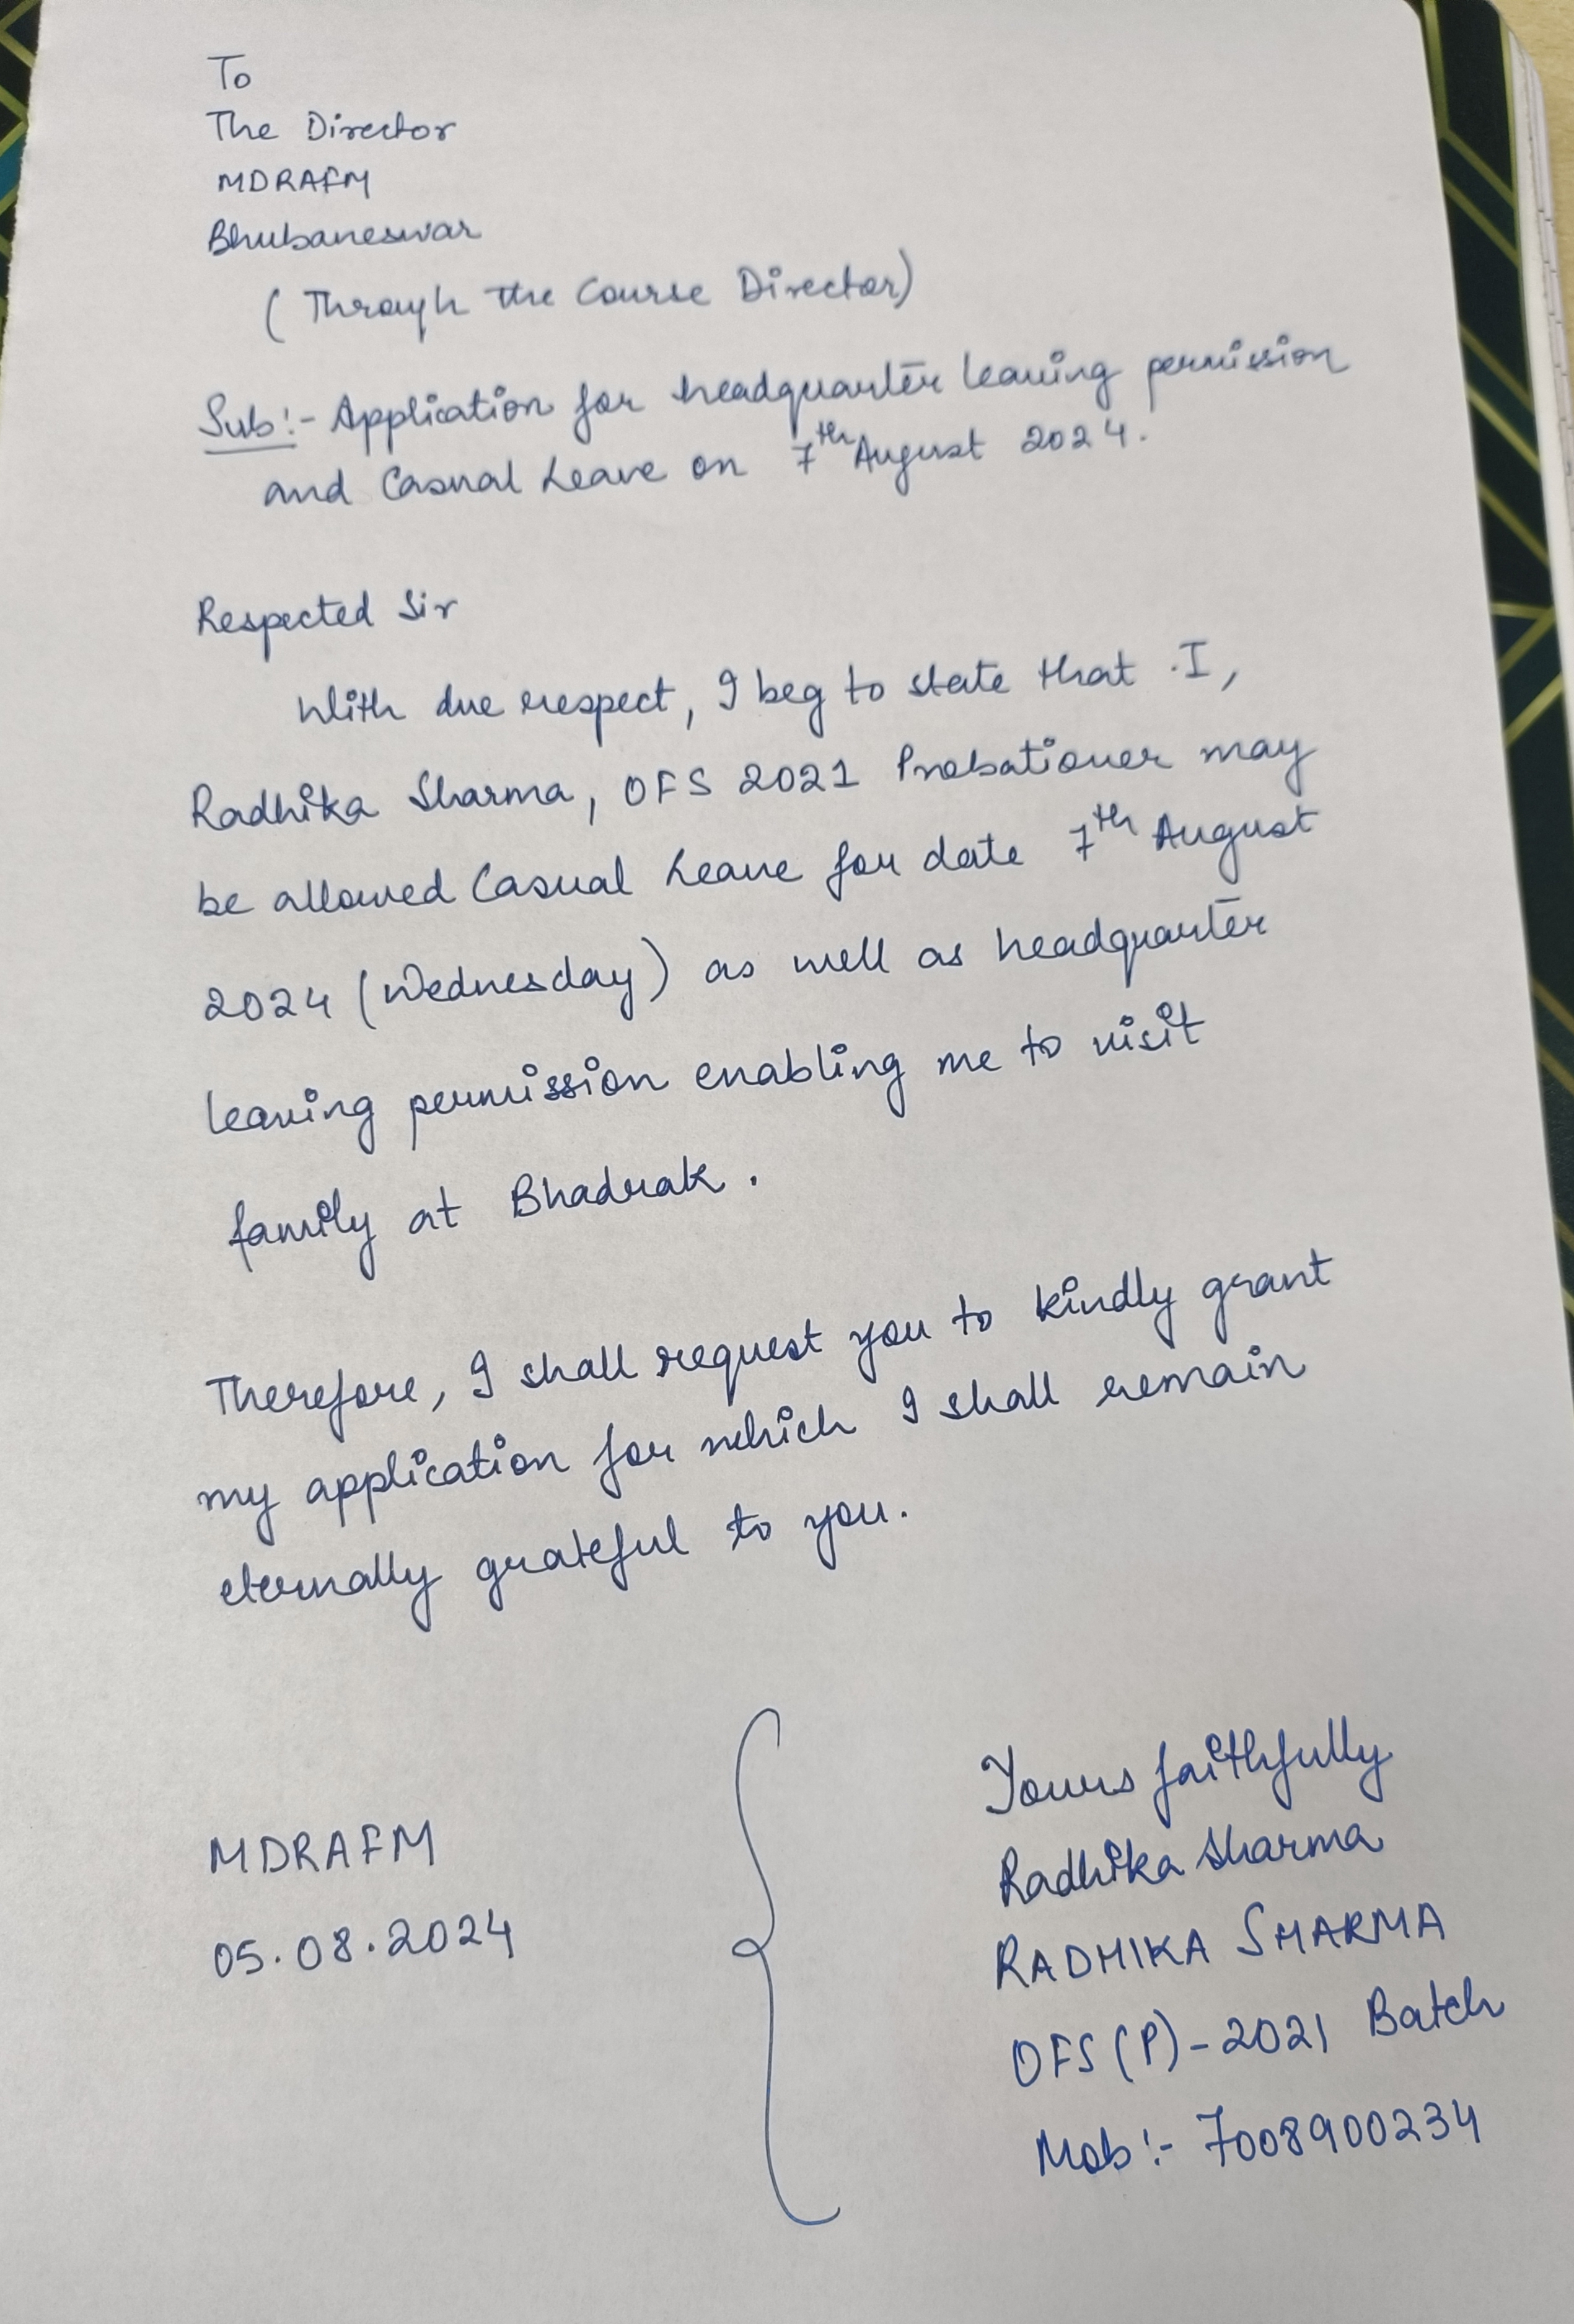 To
The Director
MDRAFM
Bhubaneswar
(Through the Course Director)
Sub:- Application for headquarter leaving permission
and Casual Leave on 7th August 2024.
Respected Sir
With due respect, I beg to state that I,
Radhika Sharma, OFS 2021 Probationer may
be allowed Casual Leave for date 7th August
2024 (Wednesday) as well as headquarter
leaving permission enabling me to visit
family at Bhadrak.
Therefore, I shall request you to kindly grant
my application for which I shall remain
eternally grateful to you.
MDRAFM
05.08.2024
Yours faithfully
Radhika Sharma
RADHIKA SHARMA
OFS (P) - 2021 Batch
Mob:- 7008900234